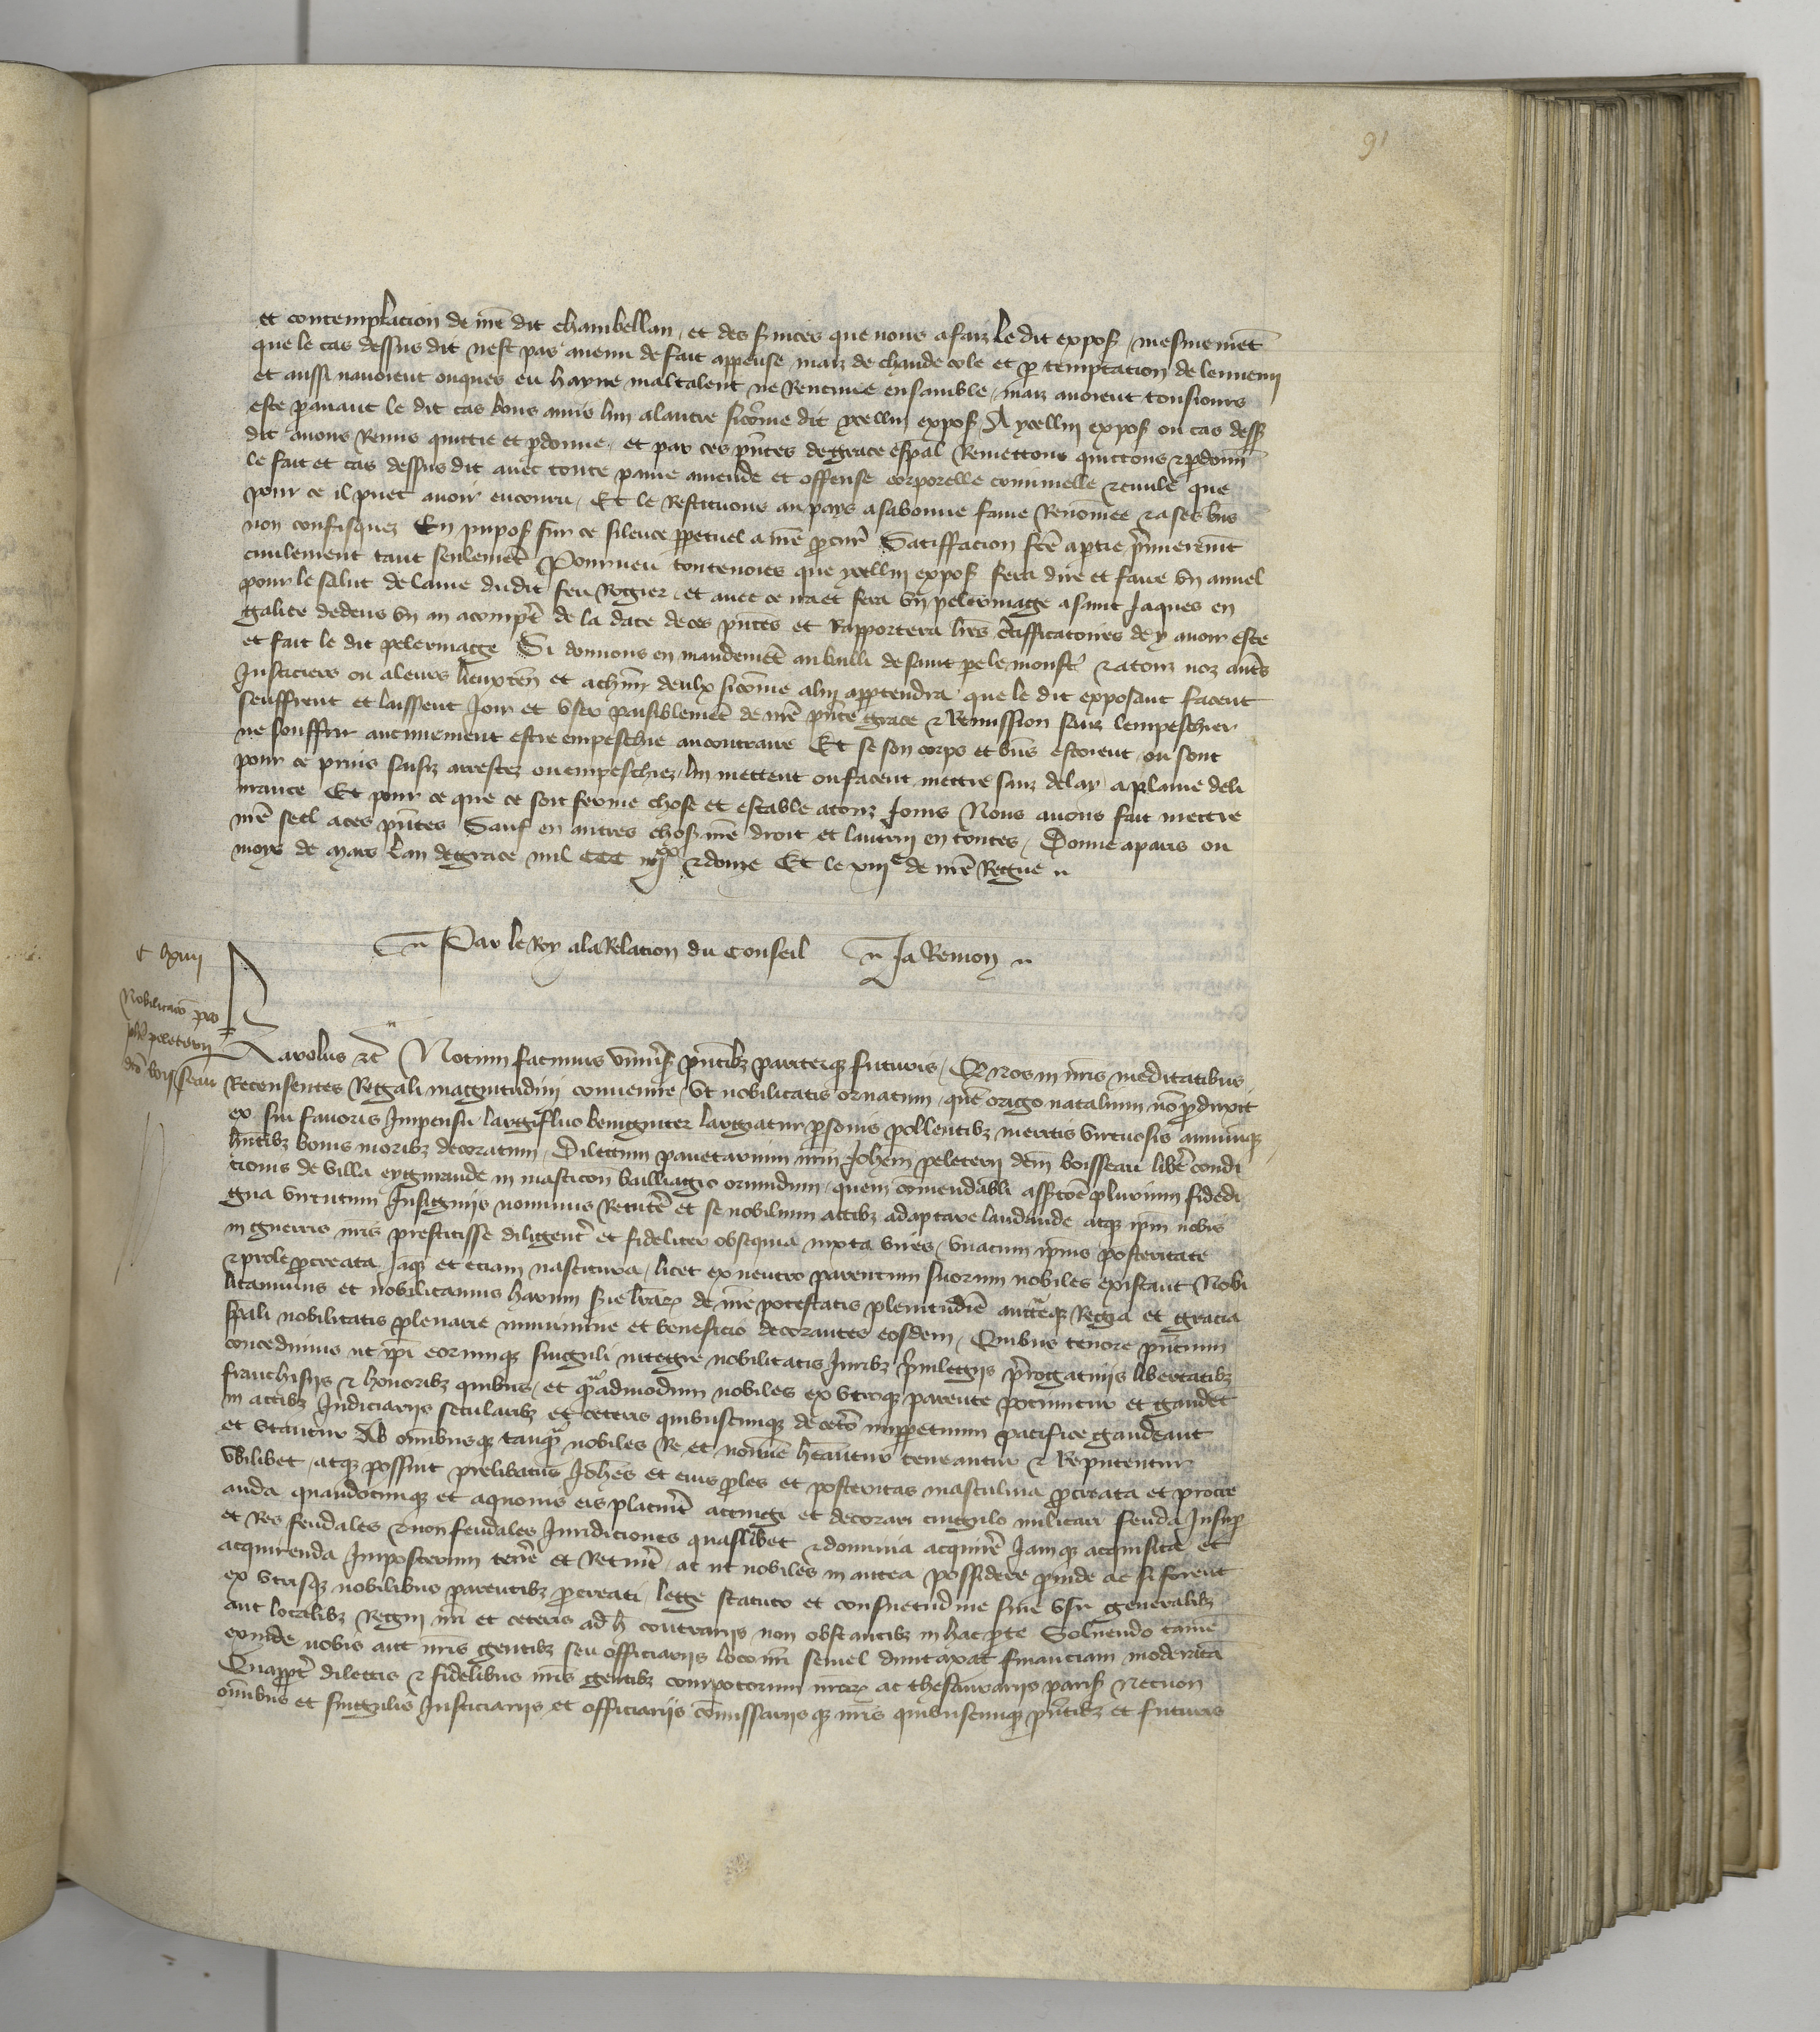 91
et contemplacion de nr̄e dit chambellan, et des s̄uices que nous a faiz le dit expos̄, mesmemēt
que le cas dessus dit nest pas auenu de fait appense, maiz de chaude cole et p temptacion de lennemi
et aussi nauoient onques eu hayne maltalent ne Rencune ensamble, maiz auoient tousiours
este parauant le dit cas bons amis lun a lautre sicōme dit ycellui expos̄ A ycellui expos̄ ou cas dess̄
dit auons Remis quittie et pdonne, et par ces pn̄tes de grace esp̄al Remettons quittons ⁊ pdonn̄
le fait et cas dessus dit auec toute paine amende et offense corporelle criminelle ⁊ ciuile que
pour ce il puet auoir encouru, Et le Restituons au pays a sa bonne fame Renōmee ⁊ a ses bn̄s
non confisquez En impos̄ sur ce silence ppetuel a nr̄e pcur̄ Satiffacion fc̄e a ptie p̄mierem̄t
ciuilement tant seulemēt Pourueu toutenoies que ycellui expos̄ fera dire et faire vn annuel
pour le salut de lame dudit feu Rogier, et auec ce ira et fera vn pelerinage a saint Jaques en
galice dedens vn an a compt̄ de la date de ces pn̄tes et Rapportera lr̄es c̄tifficatoires de y auoir este
et fait le dit pelerinage Si donnons en mandemēt au bailli de saint pere le monst̄ ⁊ a touz noz aut̄s
Justiciers ou a leurs lieuxten̄ et a chūn deulx sicōme a lui apptendra que le dit exposant facent
seuffrent et laissent Joir et vser paisiblemēt de nr̄e pn̄te grace ⁊ Remission sanz lempeschier
ne souffrir aucunement estre empeschie au contraire Et se son corps et bn̄s estoient, ou sont
pour ce prins saisiz arrestez ou empeschiez, lui mettent ou facent mettre sanz delay, a plaine deli
urance Et pour ce que ce soit ferme chose et estable a touz Jours Nous auons fait mettre
nr̄e seel a ces pn̄tes Sauf en autres chos̄ nr̄e droit et lautrui en toutes, Donne a paris ou
moys de mars Lan de grace mil CCC iiij xx ⁊ douze Et le xiije de nr̄e Regne
Par le Roy a la Relacion du Conseil Ja Remon
C lxiiij
Nobilitaco pro
Joh̄e peleterij
dc̄o boisseau
Karolus ⁊c̄ Notum facimus vniu̅s̄ pn̄tibȝ pariterqȝ futuris, Q nos in nr̄is meditatibus
Recensentes Regali magnitudini conuenire, vt nobilitatis ornatum, quē origo natalium nō pduxit
ex sui fauoris Impensu largifluo benigniter largiatur psonis pollentibȝ meritis virtuosis animūqȝ
hn̄tibȝ bonis moribȝ decoratum, Dilectum panetarium nr̄m Joh̄em peleterij dc̄m boisseau lib̄e condi
tionis de villa eygurande in masticon̄ bailliagio oriundum, quem cōmendabili assc̄ione plurium fidedi
gna virtutum Insigniis nouimus Retin̄e et se nobilium actibȝ adaptare laudande, atqȝ ip̄m nobis
in guerris nr̄is prestitisse diligent̄ et fideliter obsequia iuxta vires, vnacum ip̄ius posteritate
⁊ prole pcreata Jaqȝ et etiam nascitura, licet ex neutro parentum suorum nobiles existant Nobi
litamus et nobilitamus harum s̄ie lr̄ar̄ de nr̄e potestatis plenitudīe auct̄eqȝ Regia et gracia
sp̄ali nobilitatis plenarie munimine et beneficio decorantes eosdem, Quibus tenore pn̄cium
concedimus ut ip̄i eorumqȝ singuli integre nobilitatis Juribȝ p̄uilegiis p̄rogatiuis libertatibȝ
franchisiis ⁊ honoribȝ quibus, et qᵃadmodum nobiles ex vtroqȝ parente potiuntur et gaudēt
in actibȝ Judiciariis secularibȝ et ceteris quibuscumqȝ de cet̄o imppetuum pacifice gaudeant
et vtantur Ab om̄ibusqȝ tanqᵃ nobiles Re et nomīe h̄eantur teneantur ⁊ Reputentur
vbilibet, atqȝ possint prelibatus Joh̄es et eius ples et posteritas masculina pcreata et procre
anda quandocumqȝ et a quouis eis placu̅it accingi et decorari cingulo militari feuda Insup
et Res feudales ⁊ non feudales Juridiciones quaslibet ⁊ dominia acquir̄e Jamqȝ acquisita et
acquirenda Imposterum ten̄e et Retin̄e ac ut nobiles in antea possidere pinde ac si forent
ex vtrisqȝ nobilibus parentibȝ pcreati, lege statuto et consuetudine siue vsu generalibȝ
aut localibȝ Regni nr̄i et ceteris ad h̄ contrariis non obstantibȝ in hac pte Soluendo tamē
exinde nobis aut nr̄is gentibȝ seu officiariis loco nr̄i semel dumtaxat financiam moderatā
Quappt̄ dilectis ⁊ fidelibus nr̄is gentibȝ compotorum nr̄or̄ ac thesaurariis paris̄ Necnon
om̄ibus et singulis Justiciariis et officiariis cōmissariisqȝ nr̄is quibuscumqȝ pn̄tibȝ et futuris